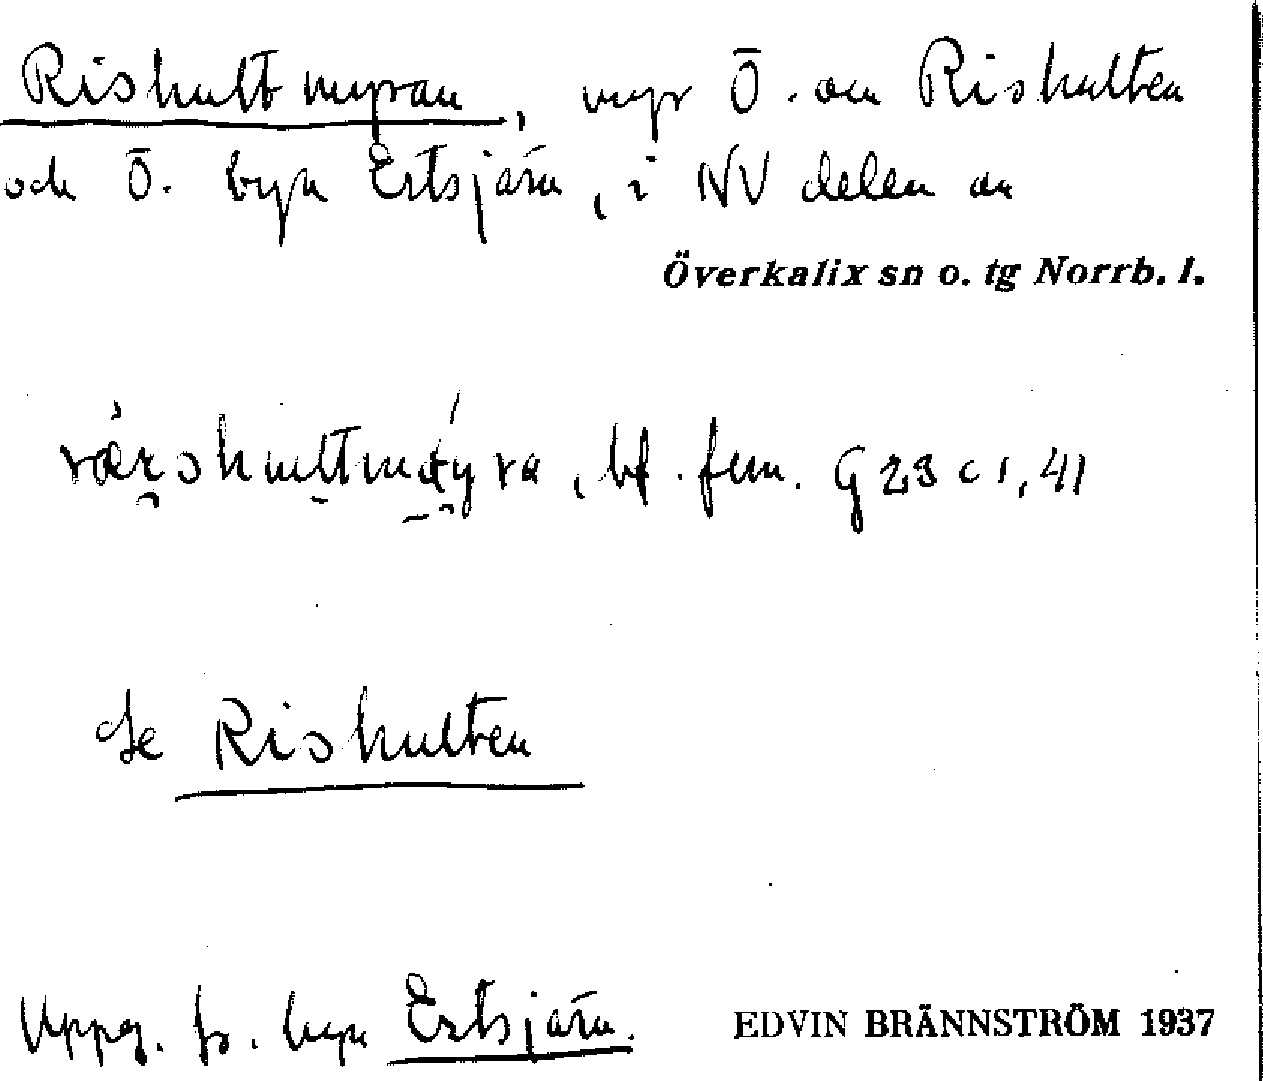 Rishultmyran, myr Ö. om Rishulten
och Ö. byn Ertsjärv, i NV delen av
Överkalix sn o. tg Norrb. l.
bf. fem. G 23 c 1, 41
Se Rishulten
Uppg. fr. byn Ertsjärv.
EDVIN BRÄNNSTRÖM 1937